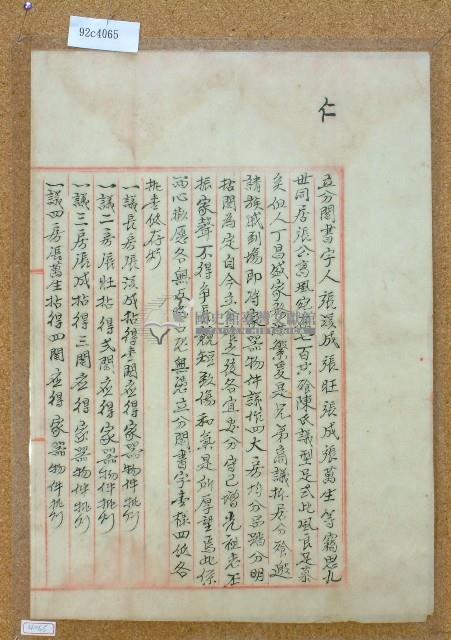 92c4065
仁
立分鬮書字人張溪成張旺張成張萬生等竊思九
世同居張公高風宛爾七百共飱陳氏議型足式此風良足慕
矣但人丁昌盛家務浩繁爰是兄弟商議拆居分飱邀
請族戚到場即将家器物件議作四大房均分品踏分明
拈鬮為定自今立之後各宜安分守己增光祖考丕
振家聲不得争長競短致傷和氣是所厚望焉此係
两心歡愿各無反口恐無憑立分鬮書字壹樣四紙各
執壹紙存炤
一議長房張溪成拈得壹鬮應得家器物件批炤
一議二房張旺拈得弍鬮應得家器物件批炤
一議三房張成拈得三鬮應得家器物件批炤
一議四房張萬生拈得四鬮應得家器物件批炤
國史館臺灣文獻館
TAIWAN HISTORICA
4065